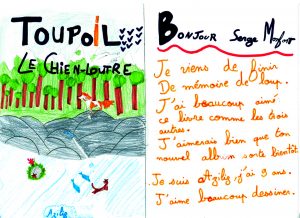 TOUPOIL
LE CHIEN-LOUTRE
Azilig
BONJOUR Serge
Je viens de finir
De mémoire de loup.
J'ai beaucoup aimé
ce livre comme les trois
autres.
J'aimerais bien que ton
nouvel album sorte bientôt.
Je suis Azilig, j'ai 9 ans.
J'aime beaucoup dessiner.